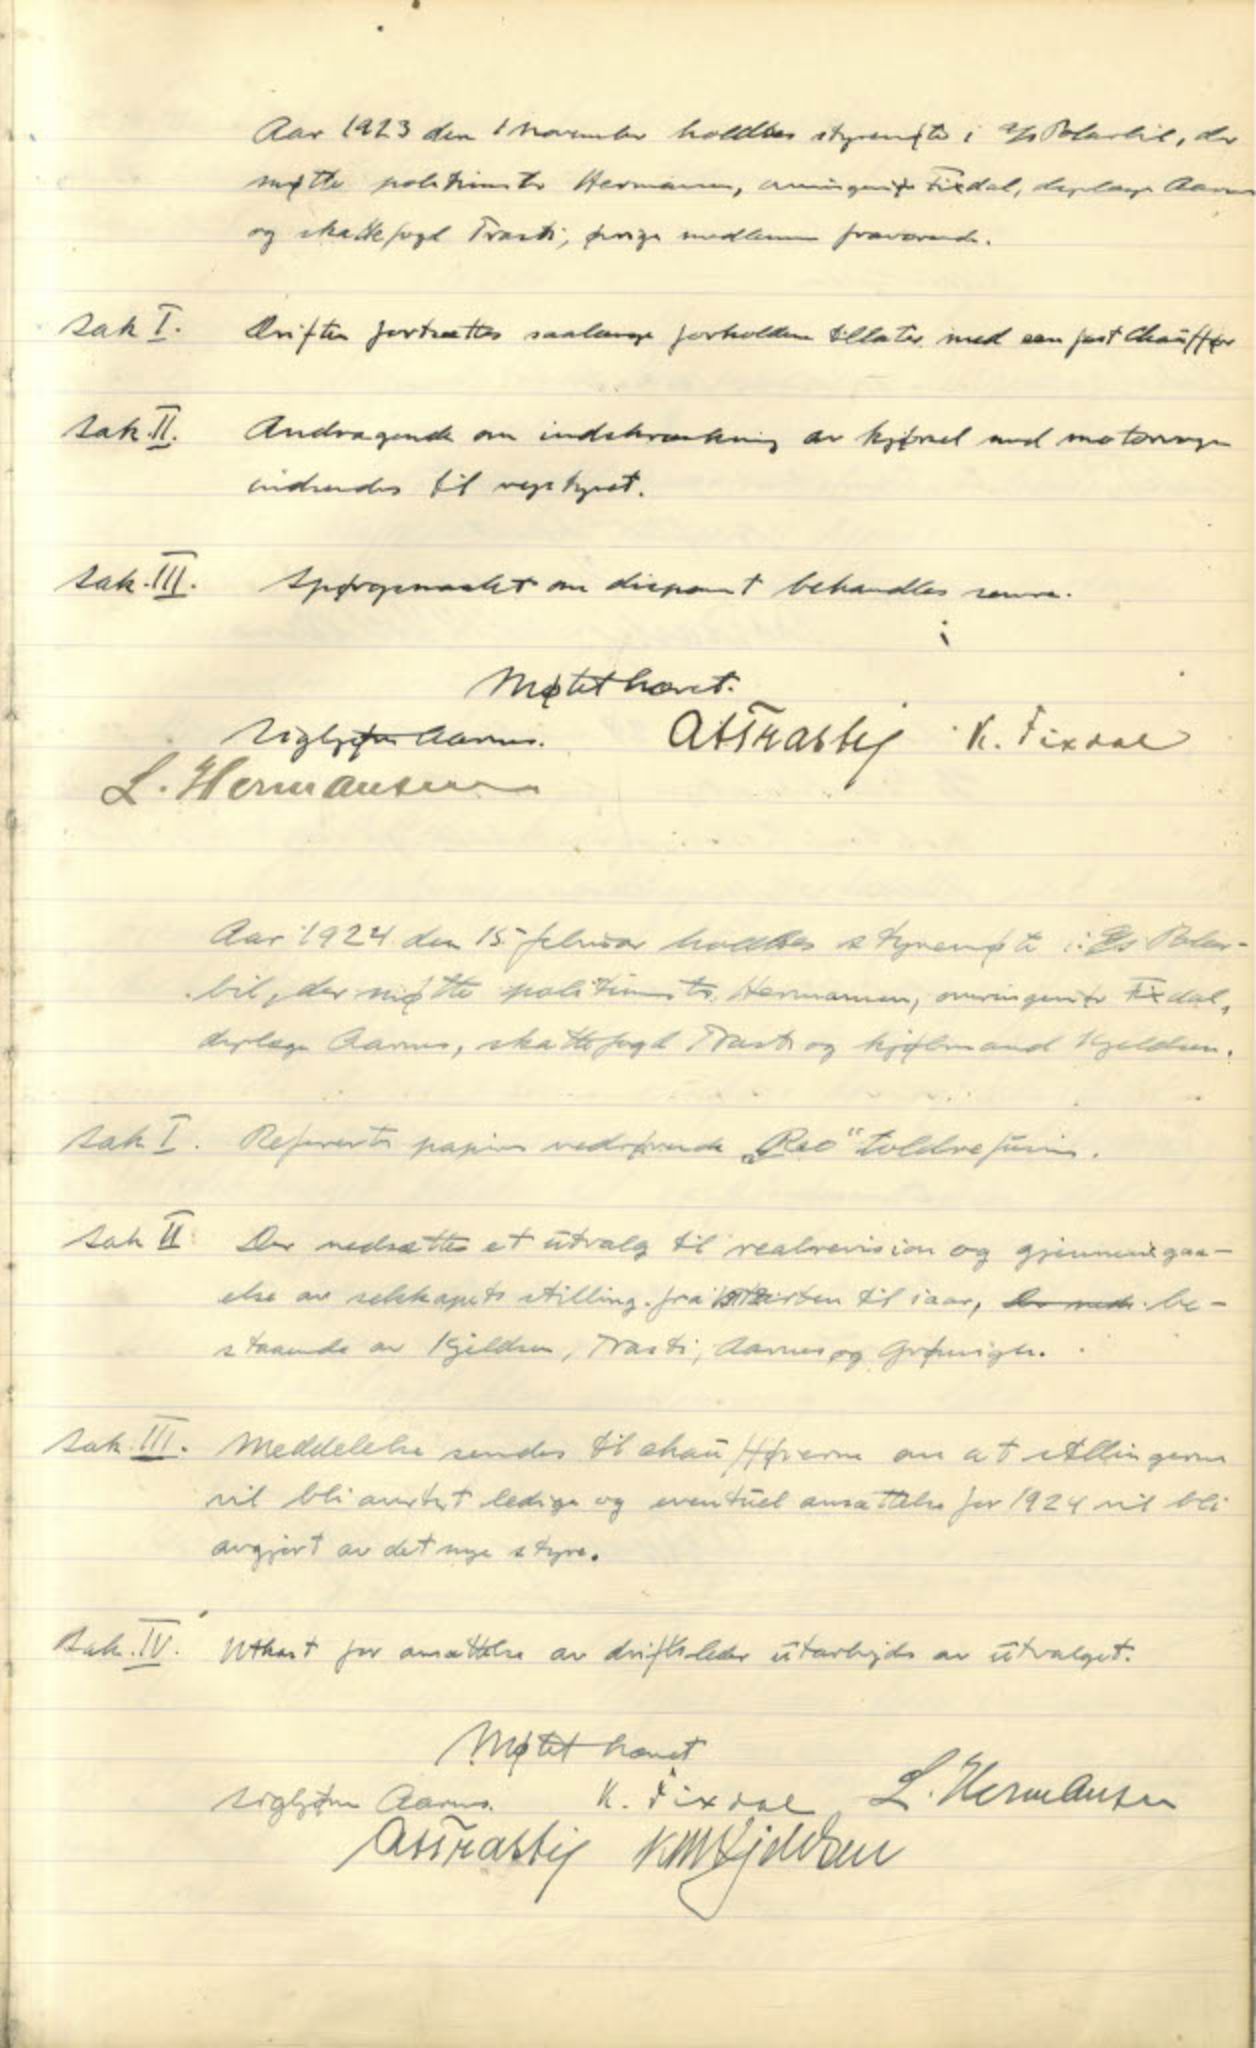 Aar 1923 den 1 november holdtes styremøte i A/S Polarbil, der
møtte politimester Hermansen, overingeniør Fixdal, dyrlæge Aarnes
og skattefogd Trasti, øvrige medlemmer fraværende.
Sak I. Driften fortsættes saalænge forholdene tillater med een fast Chauffør
Sak II. Andragende om indskrænkning av kjørsel med motorvogn
indsendes til veistyret.
Sak III. Spørgsmaalet om disponent behandles senere.
Møtet hævet.
Sigbjørn Aarnes. A Trasti K. Fixdal
L. Hermansen
Aar 1924 den 15 februar holdtes styremøte i A/S Polar-
bil, der møtte politimester Hermansen, overingeniør Fixdal,
dyrlæge Aarnes, skattefogd Trasti og kjøbmand Kjeldsen.
Sak I. Refererte papirer vedrørende „Reo" toldrefusion.
Sak II Der nedsættes et utvalg til realrevision og gjennemgaa-
else av selskapets stilling fra starten til iaar, be-
staaende av Kjeldsen, Trasti, Aarnes og Grønvigh.
Sak III. Meddelelse sendes til chaufførerne om at stillingerne
vil bli avertert ledige og eventuel ansættelse for 1924 vil bli
avgjort av det nye styre.
Sak IV. Utkast for ansættelse av driftsleder utarbeides av utvalget.
Møtet hævet
Sigbjørn Aarnes. K. Fixdal L. Hermansen
A Trasti KM Kjeldsen